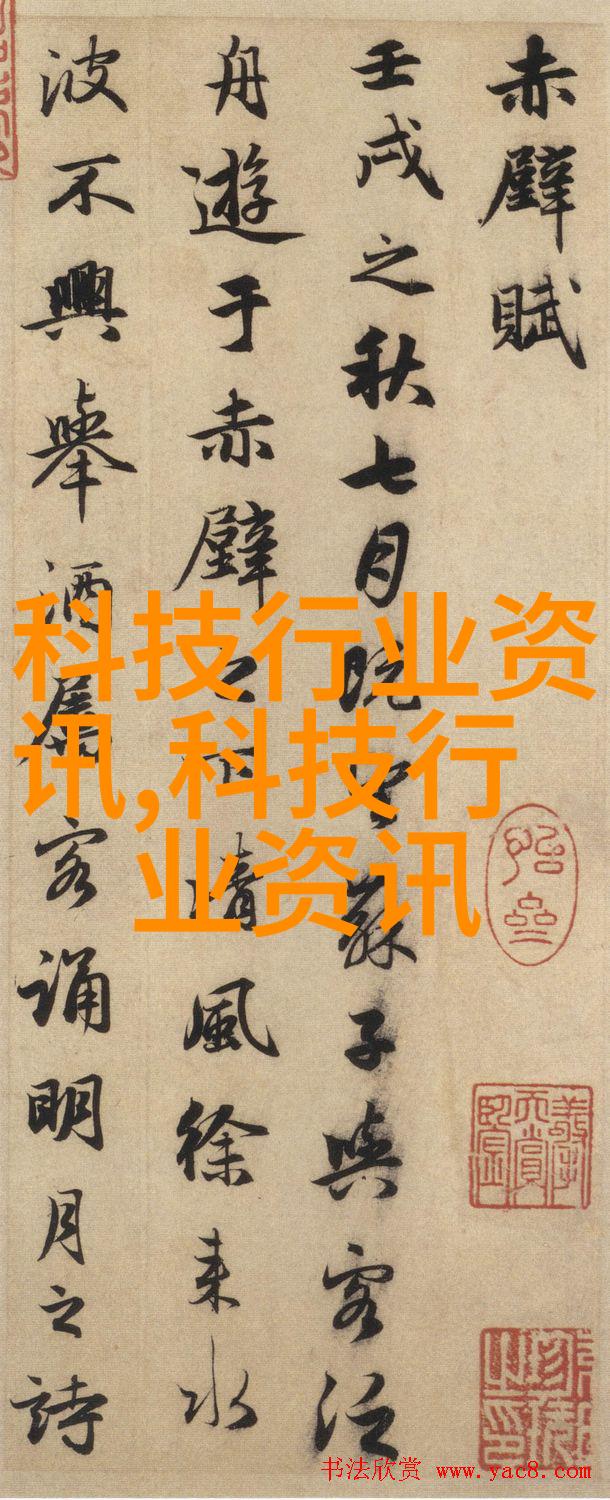 赤壁賦
壬戌之秋七月既望蘇子與客泛
舟遊于赤壁之下清風徐来水
波不興舉酒屬客誦明月之詩
科技行业资
讯,科技行
业资讯
书法欣赏 www.yac8.com